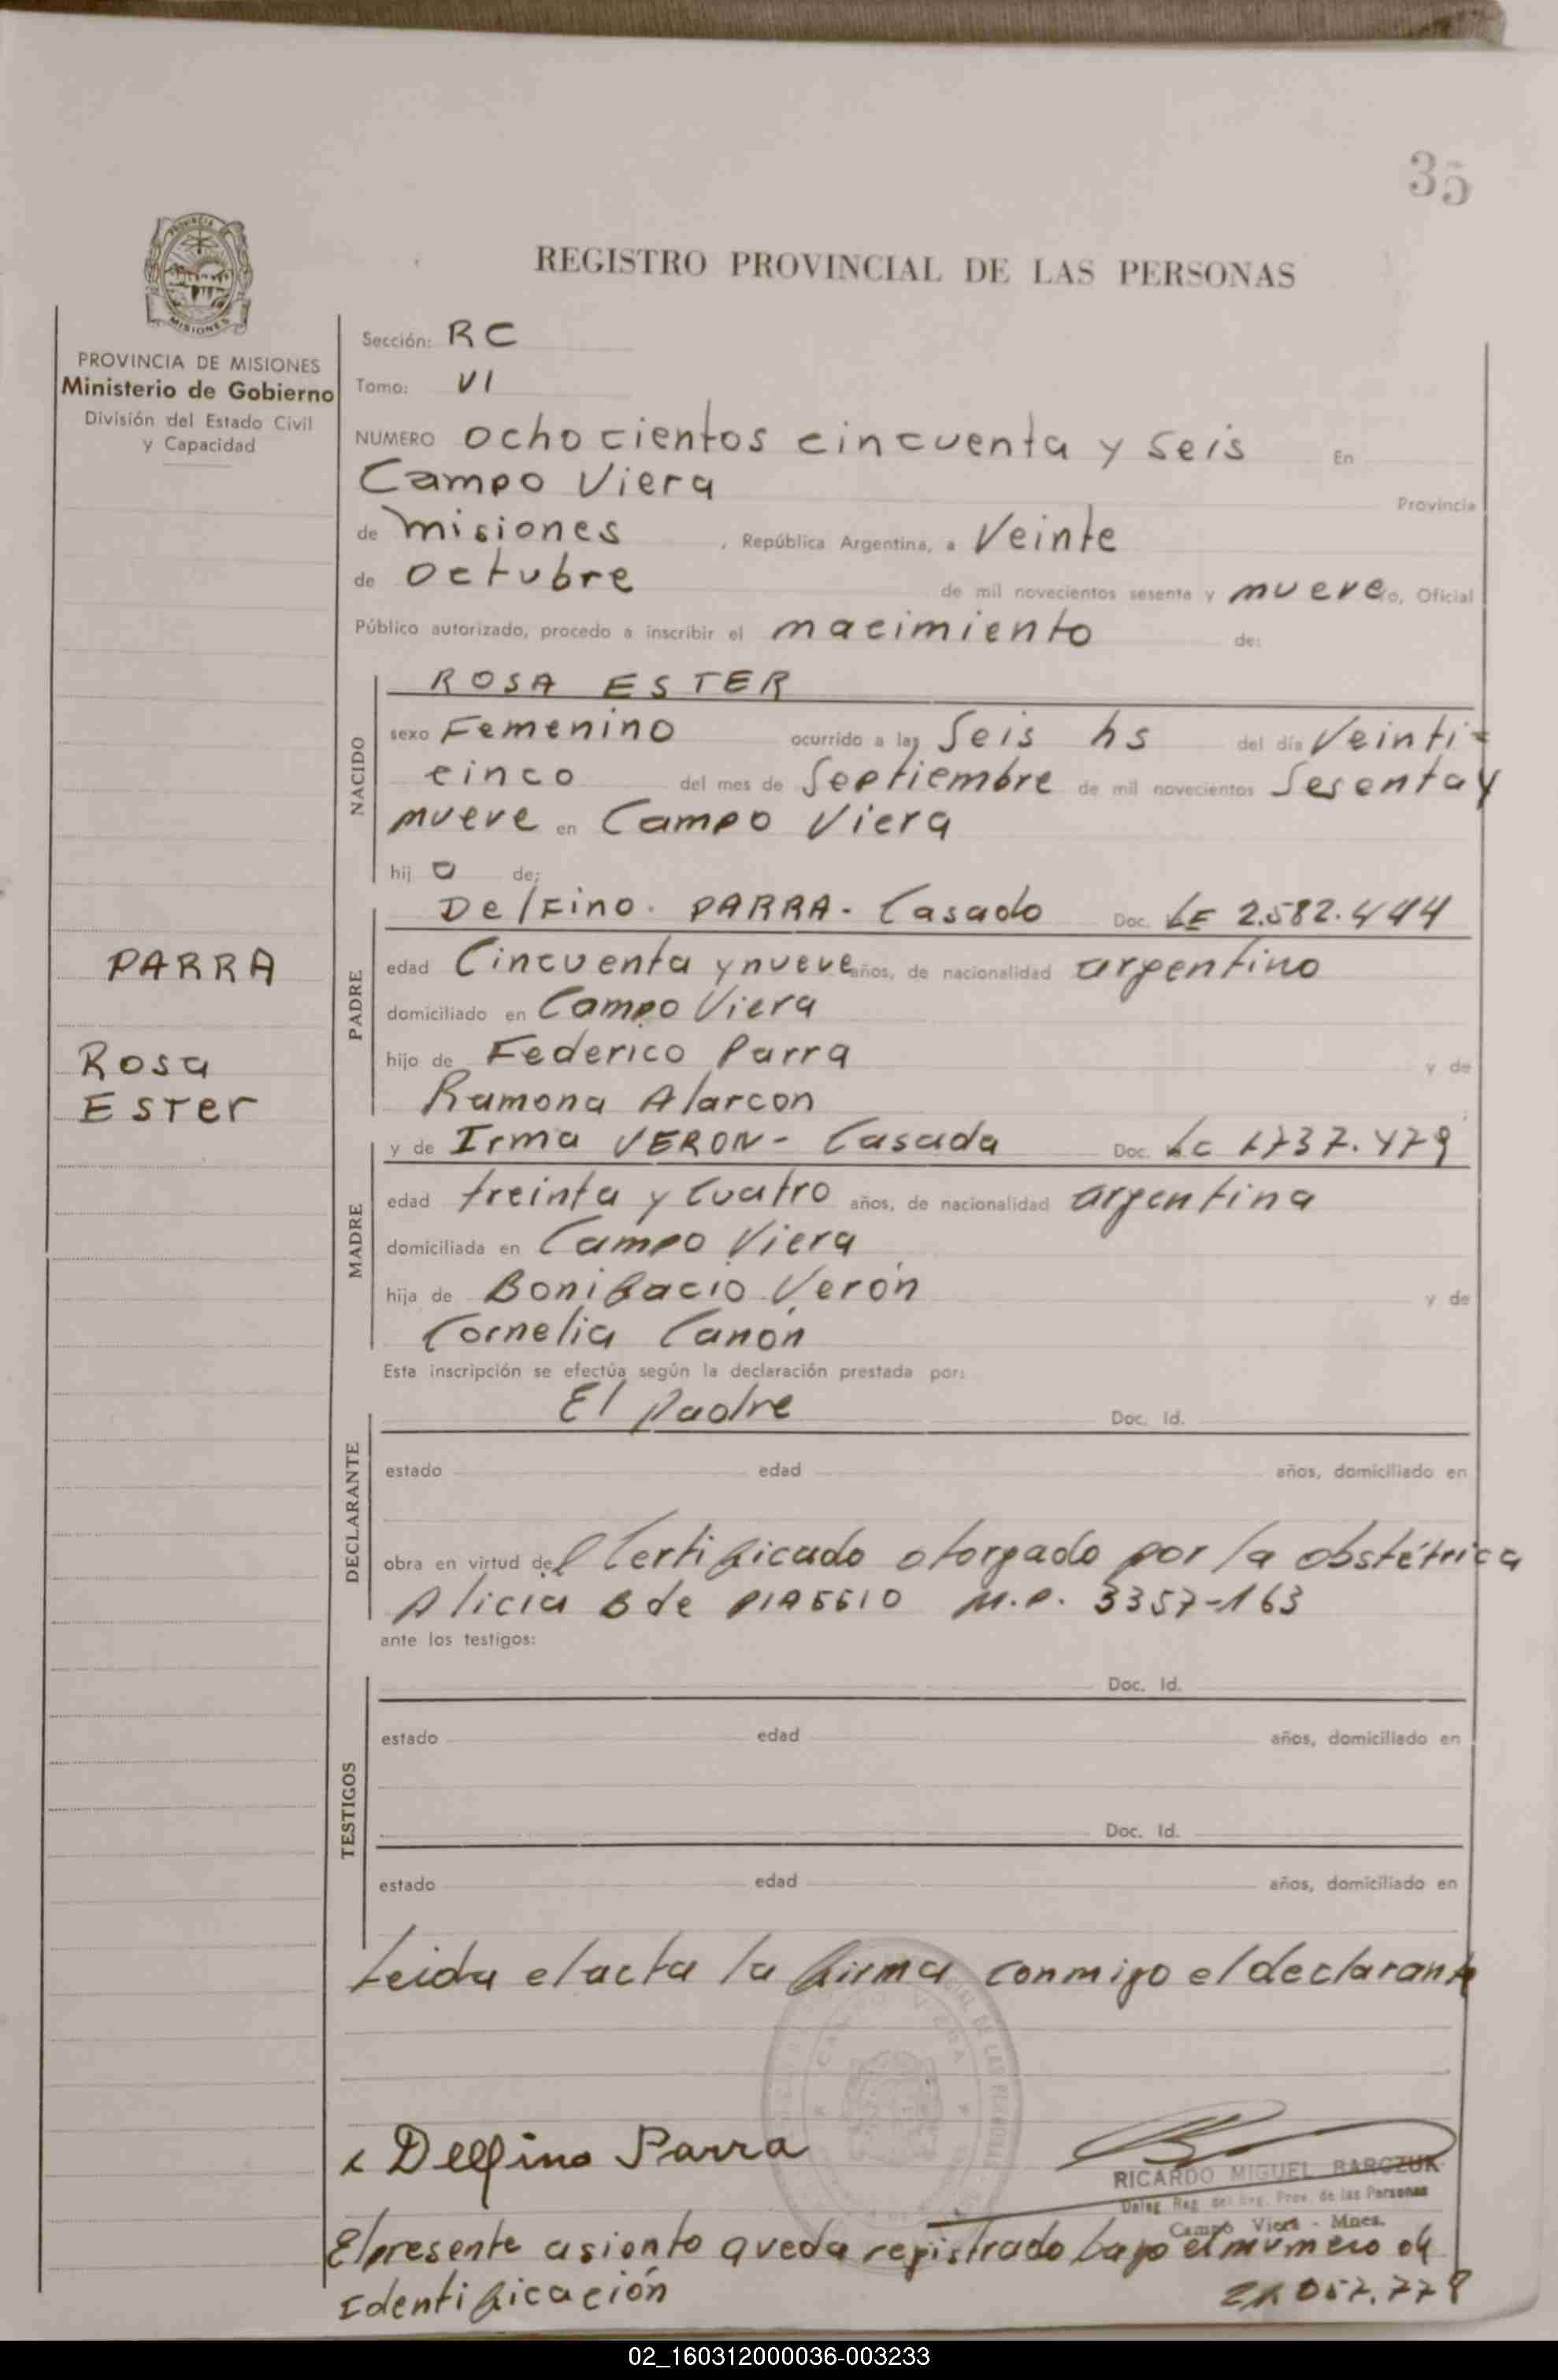 35
REGISTRO PROVINCIAL DE LAS PERSONAS
MISIONES
PROVINCIA DE MISIONES
Ministerio de Gobierno
División del Estado Civil
y Capacidad
Sección: RC
Tomo: VI
NUMERO ochocientos cincuenta y seis En
Campo Viera Provincia
de misiones, República Argentina, a Veinte
de octubre de mil novecientos sesenta y nueve yo, Oficial
Público autorizado, procedo a inscribir el nacimiento de:
NACIDO
ROSA ESTER
sexo Femenino ocurrido a las Seis hs del día Veinti-
cinco del mes de Septiembre de mil novecientos Sesenta y
nueve en Campo Viera
hij o de:
PADRE
Delfino. PARRA - Casado Doc. LE 2.582.444
edad Cincuenta y nueve años, de nacionalidad argentino
domiciliado en Campo Viera
hijo de Federico Parra y de
Ramona Alarcon
PARRA
Rosa
Ester
MADRE
y de Irma VERON - Casada Doc. Lc 1737.479
edad treinta y cuatro años, de nacionalidad argentina
domiciliada en Campo Viera
hija de Bonifacio Verón y de
Cornelia Canón
Esta inscripción se efectúa según la declaración prestada por:
DECLARANTE
El padre Doc. Id.
estado edad años, domiciliado en
obra en virtud del Certificado otorgado por la obstétrica
Alicia B de M.P. 3357-163
ante los testigos:
TESTIGOS
Doc. Id.
estado edad años, domiciliado en
Doc. Id.
estado edad años, domiciliado en
Leida el acta la firma conmigo el declarante
Delfino Parra
RICARDO MIGUEL BARCZUK
Deleg. Reg. del Reg. Prov. de las Personas
Campo Viera - Mnes.
El presente asiento queda registrado bajo el numero de
Identificación
02_160312000036-003233